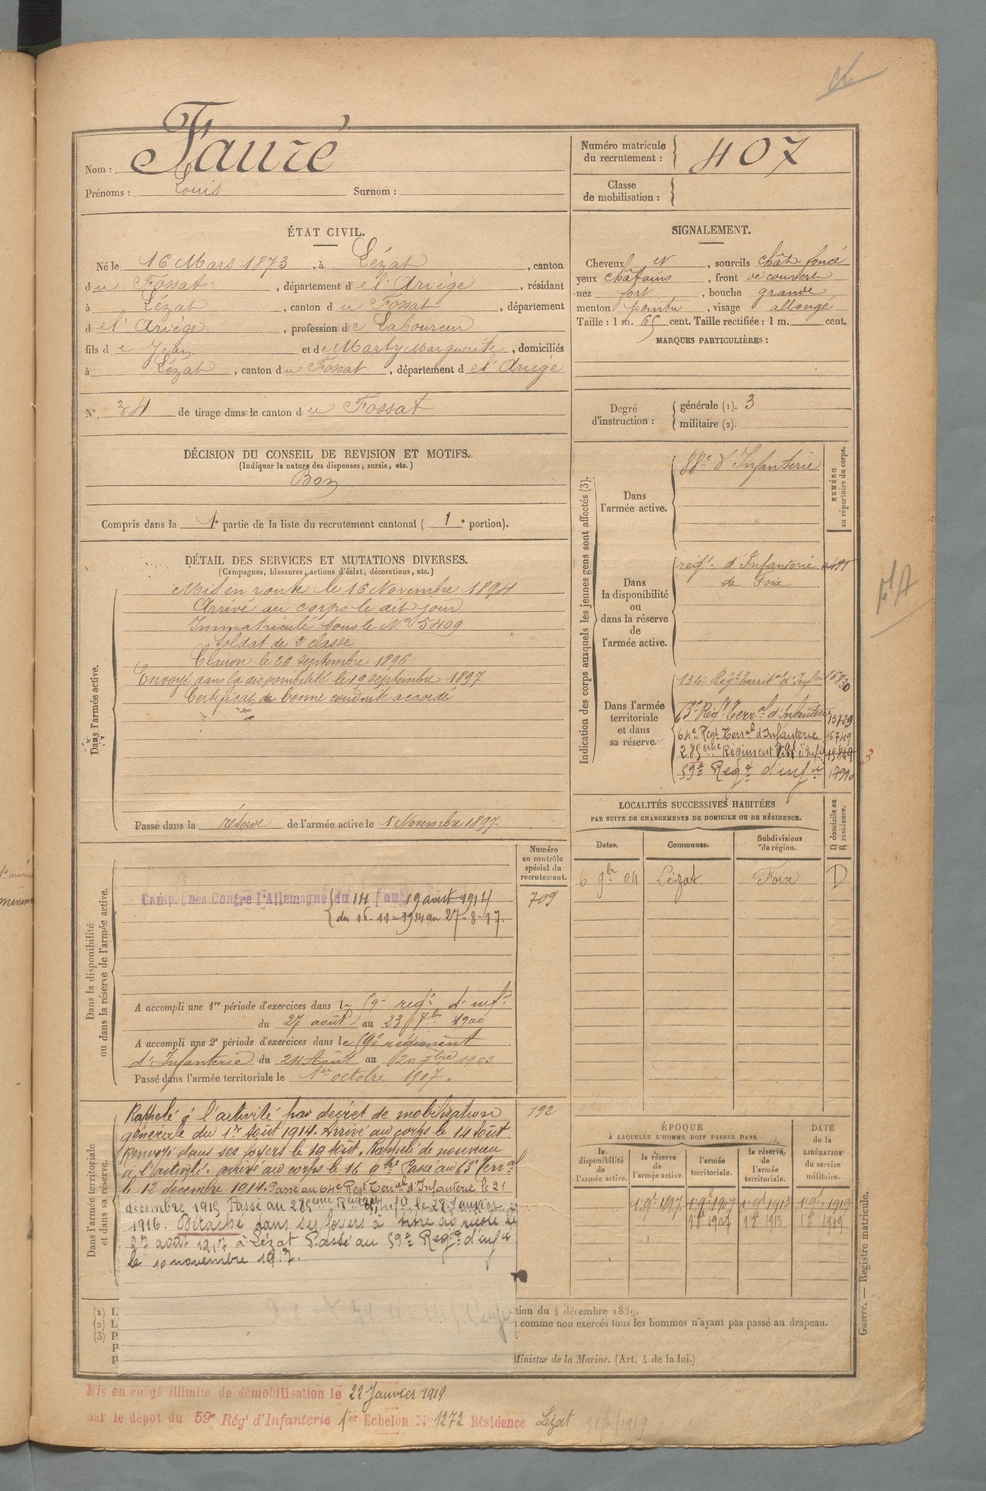 Nom : Faure
Prénoms : Louis Surnom :
Numéro matricule du recrutement : 407
Classe de mobilisation :
ÉTAT CIVIL.
Né le 16 Mars 1873, à Lézat, canton
du Fossat, département de l'Ariège, résidant
à Lézat, canton du Fossat, département
de l'Ariège, profession de Laboureur
fils de Jean et de Marty Marguerite, domiciliés
à Lézat, canton du Fossat, département de l'Ariège
N° 34 de tirage dans le canton du Fossat
SIGNALEMENT.
Cheveux N, sourcils chât foncé
yeux châtains, front découvert
nez fort, bouche grande
menton pointu, visage allongé
Taille : 1 m. 65 cent. Taille rectifiée : 1 m. cent.
MARQUES PARTICULIÈRES :
Degré d'instruction : générale (1). 3
militaire (2).
DÉCISION DU CONSEIL DE REVISION ET MOTIFS.
(Indiquer la nature des dispenses, sursis, etc.)
Bon
Compris dans la 1e partie de la liste du recrutement cantonal ( 1e portion).
DÉTAIL DES SERVICES ET MUTATIONS DIVERSES.
(Campagnes, blessures, actions d'éclat, décorations, etc.)
Dans l'armée active.
Mis en route le 16 Novembre 1894
Arrivé au corps le dit jour
Immatriculé sous le N° 5409
Soldat de 2 classe
Clairon le 26 septembre 1896
Envoyé dans la disponibilité le 19 septembre 1897
Certificat de bonne conduite accordé
Passé dans la réserve de l'armée active le 1 Novembre 1897.
Indication des corps auxquels les jeunes gens sont affectés (3).
NUMÉRO au répertoire du corps.
Dans l'armée active.
88e d'Infanterie
Dans la disponibilité ou dans la réserve de l'armée active.
régt. d'Infanterie
de Foix
Dans l'armée territoriale et dans sa réserve.
134e Régt territ d'Infie
63e Régt Terral d'Infanterie 13729
64e Regt Terral d'Infanterie 16749
285eme Régiment d'Inf
59e Regt d'infie
LOCALITÉS SUCCESSIVES HABITÉES
PAR SUITE DE CHANGEMENTS DE DOMICILE OU DE RÉSIDENCE.
D domicile ou R résidence.
Dates. Communes. Subdivisions de région.
6 9bre 04 Lézat Foix D
Numéro au contrôle spécial du recrutement.
709
Dans la disponibilité ou dans la réserve de l'armée active.
Campagnes Contre l'Allemagne du 14 au 19 août 1914
du 16-11-1914 au 27-8-17.
A accompli une 1re période d'exercices dans le 59e régt d'infie
du 27 août au 23 7bre 1900
A accompli une 2e période d'exercices dans le 59e régiment
d'Infanterie du 24 Août au
Passé dans l'armée territoriale le 1er octobre 1907.
192
Dans l'armée territoriale et dans sa réserve.
Rappelé à l'activité par décret de mobilisation
générale du 1er Août 1914. Arrivé au corps le 14 Août
Renvoyé dans ses foyers le 19 Août. Rappelé de nouveau
à l'activité. arrivé au corps le 16 9bre Passé au 63e Terral
le 12 décembre 1914. Passé au 64e Regt Terral d'Infanterie le 21
décembre 1915 Passé au 285eme Régt d'Inf. le 28 Janvier
1916. Détaché dans ses foyers à titre agricole le
27 août 1917 à Lézat Passé au 59e Regt d'infie
le 10 novembre 1917.
ÉPOQUE
À LAQUELLE L'HOMME DOIT PASSER DANS
DATE de la LIBÉRATION du service militaire.
la disponibilité de l'armée active.
la réserve de l'armée active.
l'armée territoriale.
la réserve de l'armée territoriale.
1 9bre 1897 1 9bre 1907 1 9bre 1913 1 9bre 1919
1 8bre 1907 1 8bre 1913 1 8bre 1919
(1) L
(2) L
(3) P
P
P
tion du 4 décembre 1889.
comme non exercés tous les hommes n'ayant pas passé au drapeau.
Ministre de la Marine. (Art. 4 de la loi.)
Guerre. — Registre matricule.
Mis en congé illimité de démobilisation le 22 Janvier 1919
par le dépôt du 59e Rég' d'Infanterie 1er Echelon N° 1272 Résidence Lézat